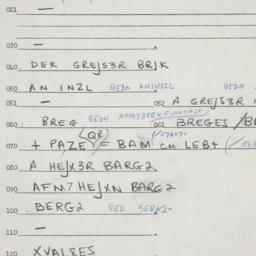 021 —
030 —
040 DER GREJS3R BRJK
050 AN INZL GEDN ANINDZL GEDN
051 — 052 A GREJS3R
060 BREG GEDN BREGES /
070 + PAZE = BAM CM LEB+
080 A HEJX3R BARG2.
090 AFM7 HEJXN BARG2
100 BERG2 GED BERK2-
110 —
120 XVAL8ES